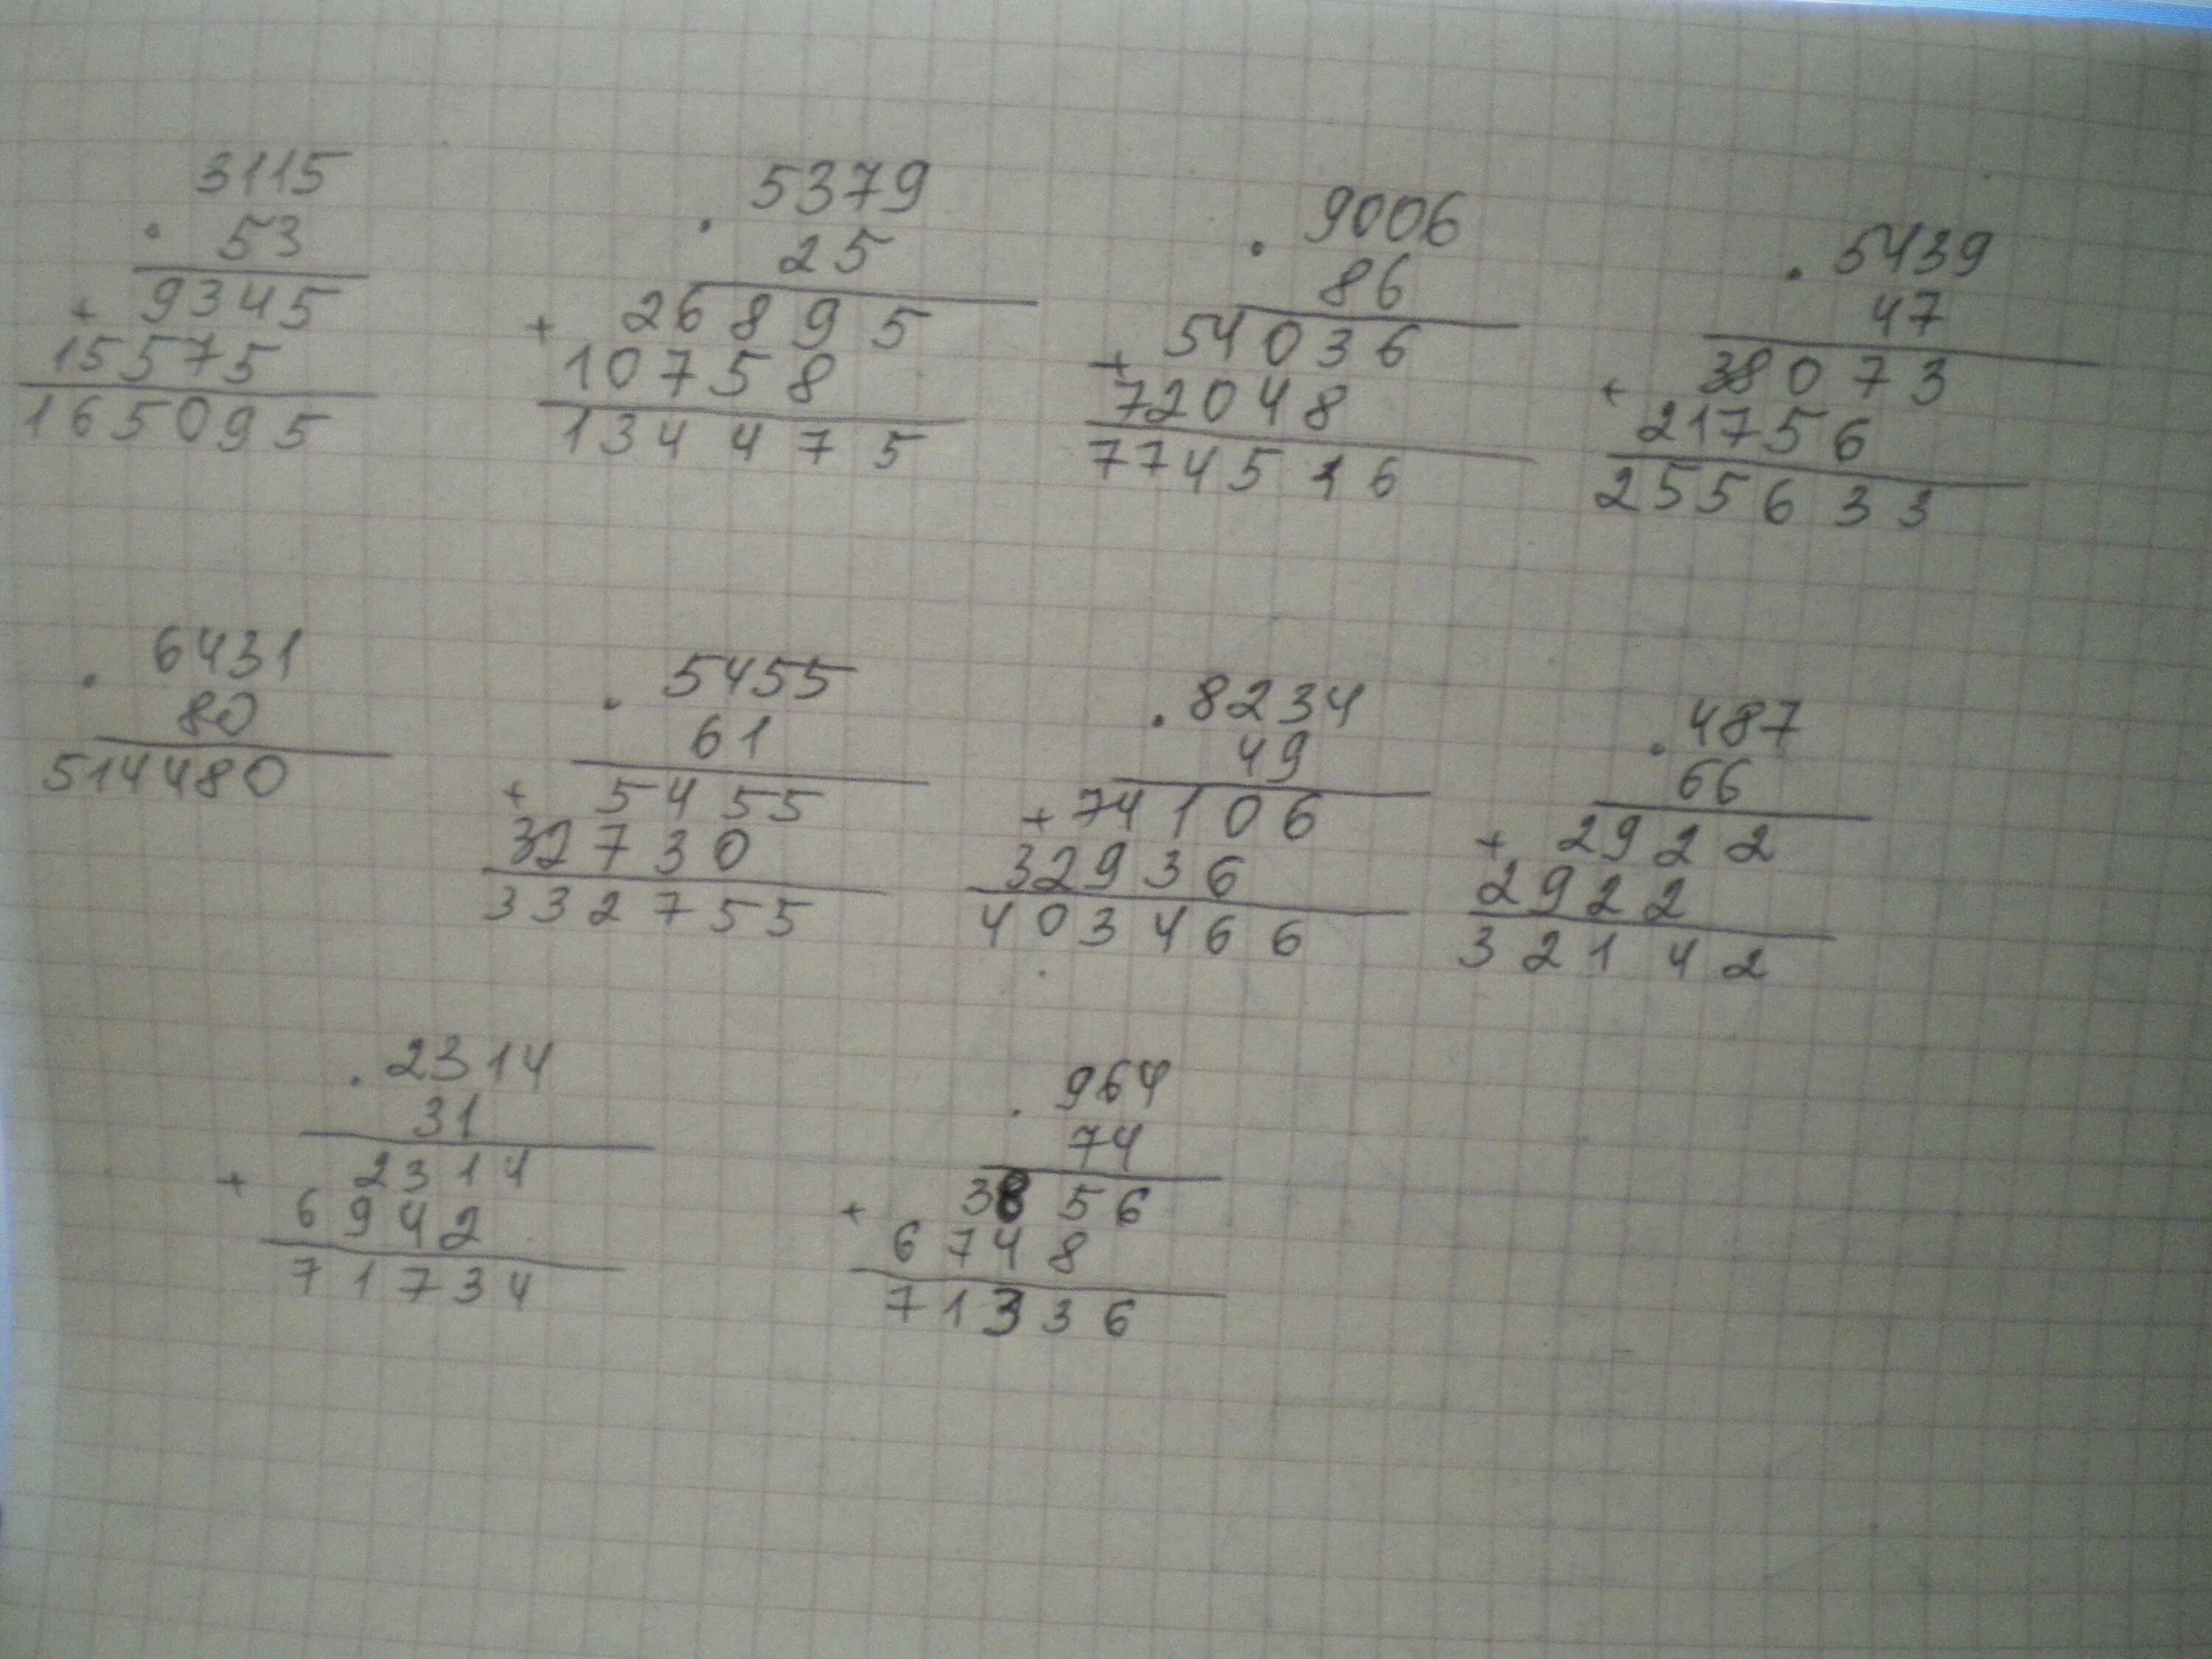 3115
. 53
+ 9345
15575
165095
. 5379
25
+ 26895
10758
134475
. 9006
86
+ 54036
72048
774516
. 5439
47
+ 38073
21756
255633
. 6431
80
514480
. 5455
61
+ 5455
32730
332755
. 8234
49
+ 74106
32936
403466
. 487
66
+ 2922
2922
32142
. 2314
31
+ 2314
6942
71734
. 964
74
+ 3856
6748
71336